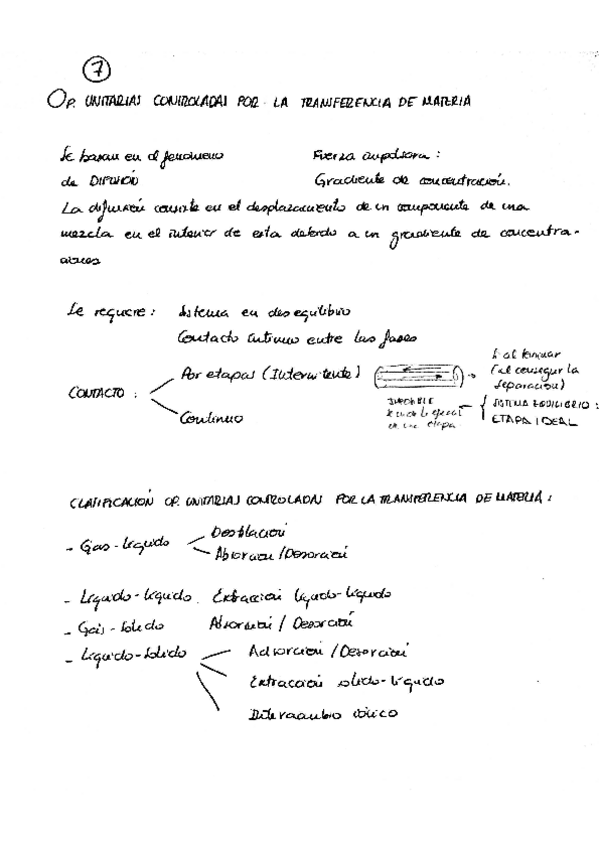 7
OP. UNITARIAS CONTROLADAS POR LA TRANSFERENCIA DE MATERIA
Se basan en el fenómeno
de DIFUSIÓN
Fuerza impulsora:
Gradiente de concentración.
La difusión consiste en el desplazamiento de un componente de una
mezcla en el interior de esta debido a un gradiente de concentra-
ciones
Se requiere: Sistema en desequilibrio
Contacto íntimo entre las fases
CONTACTO:
Por etapas (Intermitente)
Continuo
al
(al conseguir la
separación)
SISTEMA EQUILIBRIO:
ETAPA IDEAL
en una etapa
CLASIFICACIÓN OP. UNITARIAS CONTROLADAS POR LA TRANSFERENCIA DE MATERIA:
- Gas-líquido
Destilación
Absorción/Desorción
- Líquido-líquido Extracción líquido-líquido
- Gas-sólido Adsorción / Desorción
- Líquido-sólido
Adsorción /Desorción
Extracción sólido-líquido
Intercambio iónico